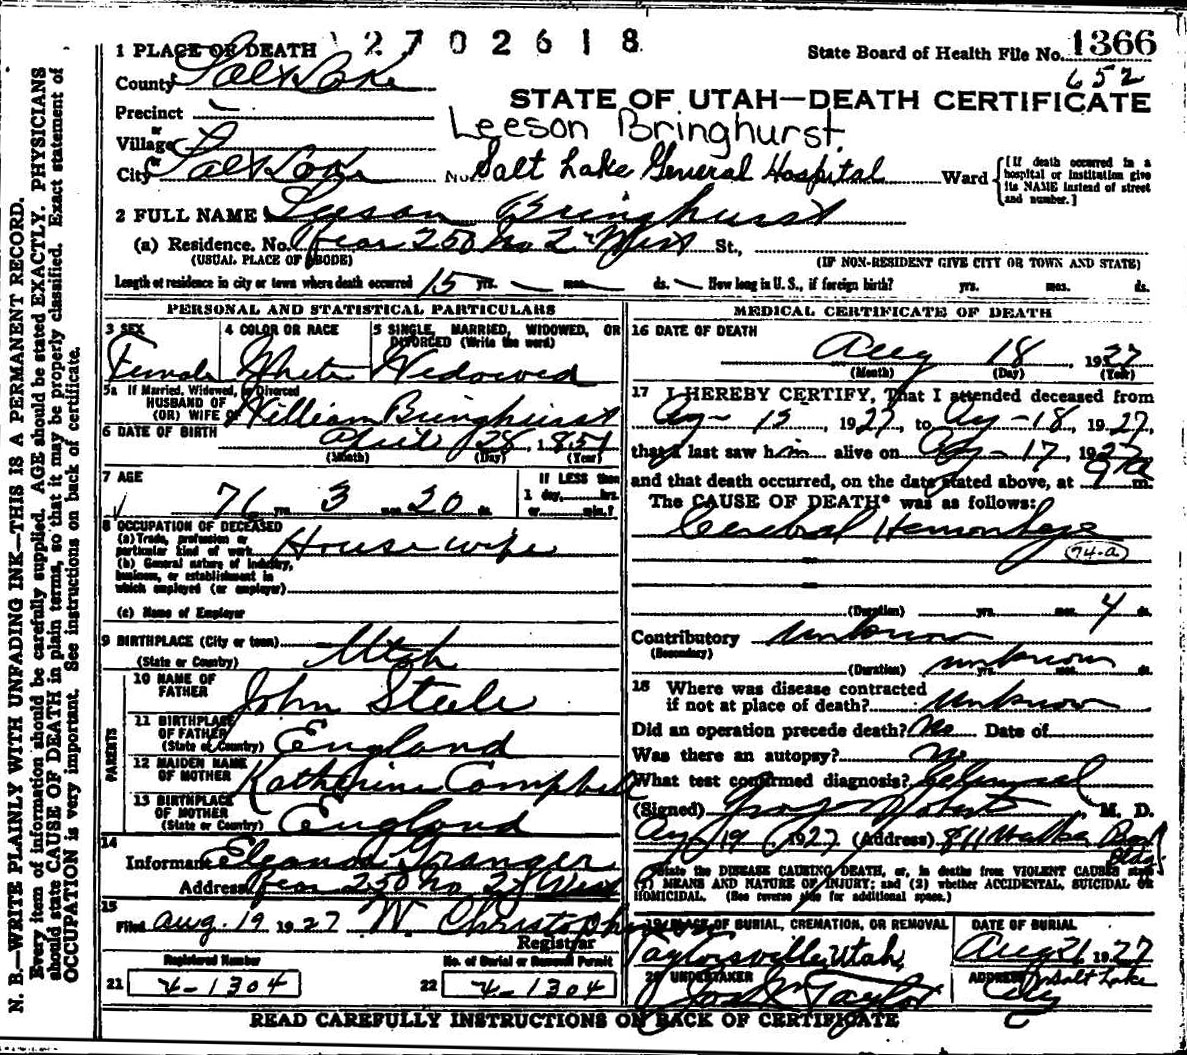 1 PLACE OF DEATH 2702618 State Board of Health File No. 1366
652
County Salt Lake
STATE OF UTAH—DEATH CERTIFICATE
Precinct
Leeson Bringhurst.
or
Village
or
City Salt Lake No. Salt Lake General Hospital Ward [If death occurred in a hospital or institution give its NAME instead of street and number.]
2 FULL NAME Leeson Bringhurst
(a) Residence. No. Rear 250 No 2nd West St.,
(USUAL PLACE OF ABODE) (IF NON-RESIDENT GIVE CITY OR TOWN AND STATE)
Length of residence in city or town where death occurred 15 yrs. — mos. — ds. — How long in U. S., if foreign birth? yrs. mos. ds.
PERSONAL AND STATISTICAL PARTICULARS
3 SEX 4 COLOR OR RACE 5 SINGLE, MARRIED, WIDOWED, OR DIVORCED (Write the word)
Female White Widowed
5a If Married, Widowed, or Divorced
HUSBAND OF
(OR) WIFE OF William Bringhurst
6 DATE OF BIRTH April 28 1851
(Month) (Day) (Year)
7 AGE IF LESS than
1 day, hrs.
76 yrs. 3 mos. 20 ds. or min.?
8 OCCUPATION OF DECEASED
(a) Trade, profession or
particular kind of work Housewife
(b) General nature of industry,
business, or establishment in
which employed (or employer)
(c) Name of Employer
9 BIRTHPLACE (City or town)
(State or Country) Utah
PARENTS
10 NAME OF
FATHER John Steele
11 BIRTHPLACE
OF FATHER
(State or Country) England
12 MAIDEN NAME
OF MOTHER Katherine Campbell
13 BIRTHPLACE
OF MOTHER
(State or Country) England
14
Informant Eleanor Granger
Address Rear 250 No 2nd West
15
Filed Aug. 19 1927 W. Christoph
Registrar
Registered Number No. of Burial or Removal Permit
21 4-1304 22 4-1304
MEDICAL CERTIFICATE OF DEATH
16 DATE OF DEATH
Aug 18, 1927
(Month) (Day) (Year)
17 I HEREBY CERTIFY, That I attended deceased from
Ag- 15, 1927, to Ag-18, 1927,
that I last saw him alive on Ag-17, 1927
and that death occurred, on the date stated above, at 9 a m.
The CAUSE OF DEATH* was as follows:
Cerebral Hemorrhage
74-a
(Duration) yrs. mos. 4 ds.
Contributory unknown
(Secondary)
(Duration) unknown yrs. mos. ds.
18 Where was disease contracted
if not at place of death? unknown
Did an operation precede death? No Date of
Was there an autopsy? no
What test confirmed diagnosis?
(Signed) M. D.
Ag 19 1927 (Address) 811 Walker Bank Bldg.
*State the DISEASE CAUSING DEATH, or, in deaths from VIOLENT CAUSES state
(1) MEANS AND NATURE OF INJURY; and (2) whether ACCIDENTAL, SUICIDAL OR
HOMICIDAL. (See reverse side for additional space.)
19 PLACE OF BURIAL, CREMATION, OR REMOVAL DATE OF BURIAL
Taylorsville Utah, Aug 21, 1927
20 UNDERTAKER ADDRESS Salt Lake
Taylor City
READ CAREFULLY INSTRUCTIONS ON BACK OF CERTIFICATE
N. B.—WRITE PLAINLY WITH UNFADING INK—THIS IS A PERMANENT RECORD.
Every item of information should be carefully supplied. AGE should be stated EXACTLY. PHYSICIANS
should state CAUSE OF DEATH in plain terms, so that it may be properly classified. Exact statement of
OCCUPATION is very important. See instructions on back of certificate.